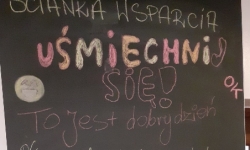 ŚCIANKA WSPARCIA
UŚMIECHNIJ
SIĘ!
OK
To jest dobry dzień